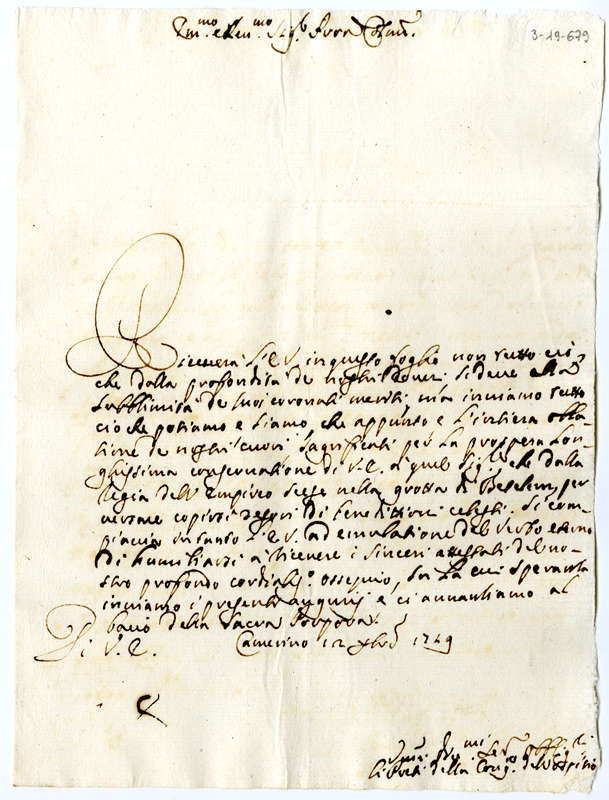 Em.mo e Rev.mo Sig.r Pron Colmo.
3-19-679
Riceverà L'E V. in questo foglio non tutto ciò
che dalla profondità de nostri doveri si deve alla
subblimità de suoi coronati meriti, ma inviamo tutto
ciò che potiamo e siamo, che appunto è l'intiera obla-
tione de nostri cuori sagrificati per la prospera lon-
ghissima conservatione di V.E. a quel Sig.re che dalla
Regia dell'Empireo scese nella grotta di Betelem, per
versare copiosi tesori di beneditioni celesti. Si com-
piaccia in tanto L'E V. ad emulatione del Verbo eterno
di humiliarsi a ricevere i sinceri attestati del no-
stro profondo cordialis.o ossequio, su la cui speranza
inviamo i presenti augurij e ci avvantiamo al
bacio della sacra Porpora.
Di V. E. Camerino 12 Xbre 1749
Li Preti della Cong.e dell'